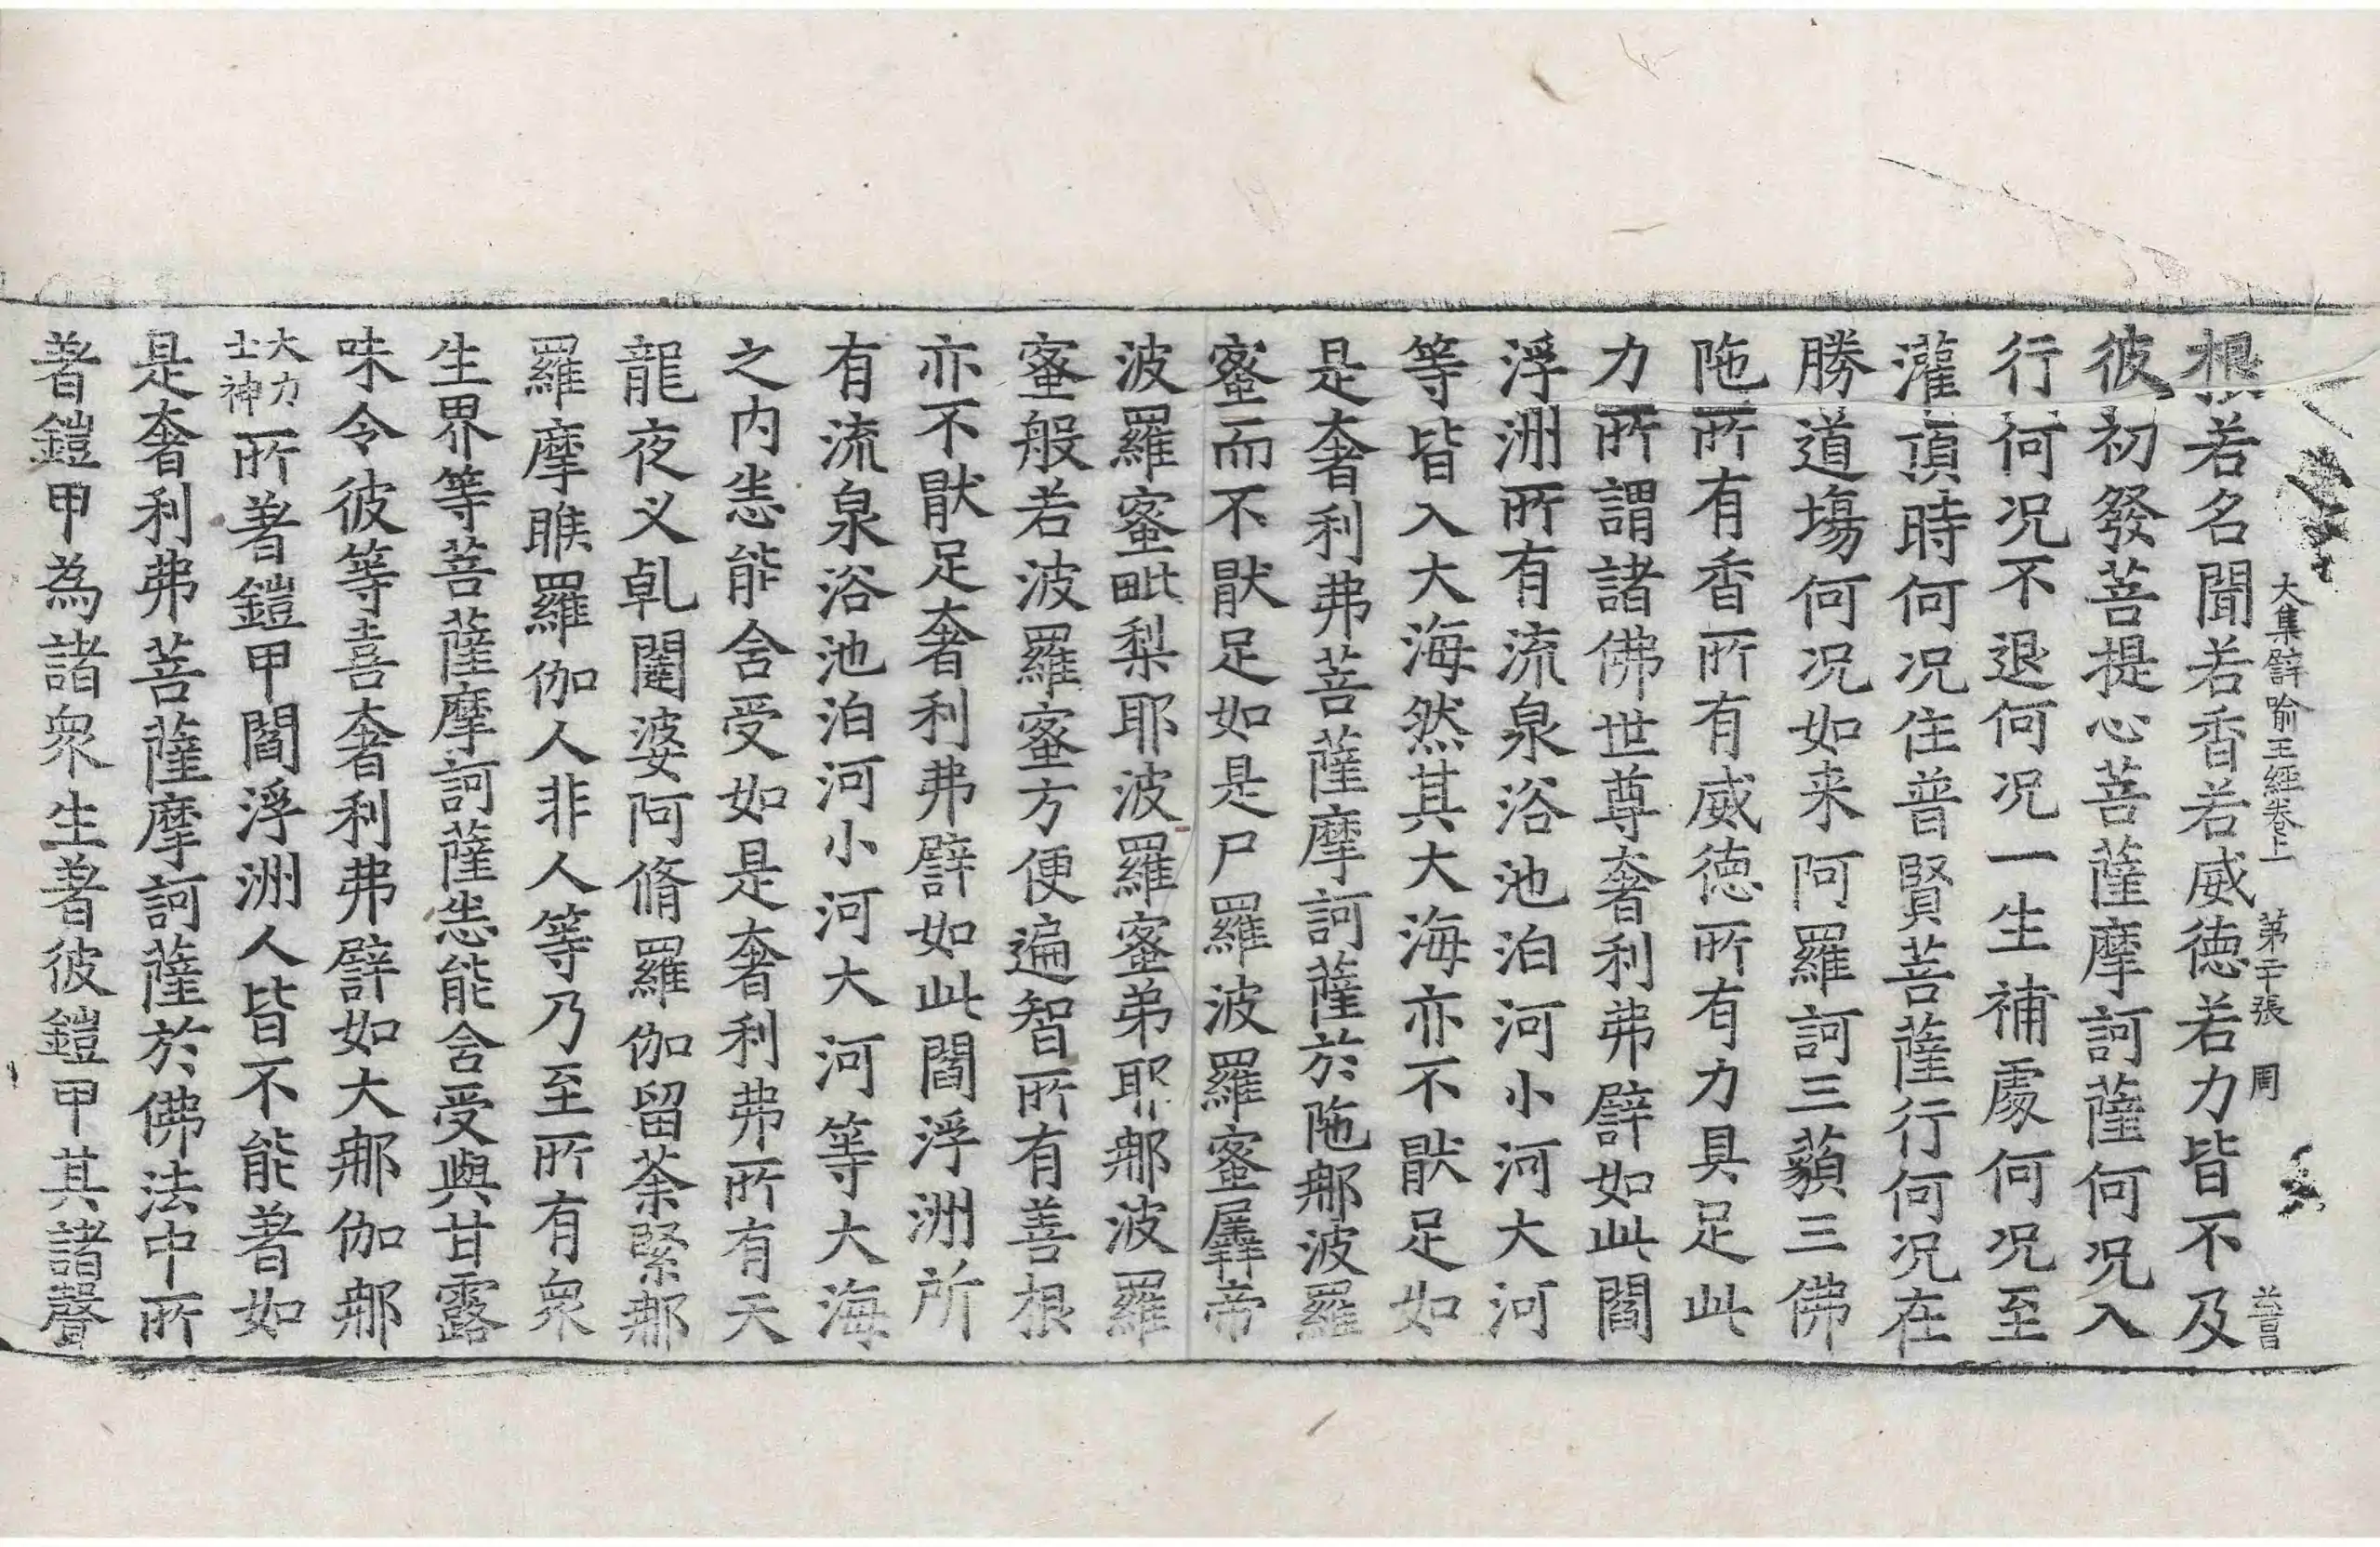 根若名聞若香若威德若力皆不及
彼初發菩提心菩薩摩訶薩何况入
行何况不退何况一生補處何况至
灌頂時何况住普賢菩薩行何况在
勝道場何况如来阿羅訶三藐三佛
陁所有香所有威德所有力具足此
力所謂諸佛世尊奢利弗譬如此閻
浮洲所有流泉浴池泊河小河大河
等皆入大海然其大海亦不猒足如
是奢利弗菩薩摩訶薩於陁那波羅
蜜而不猒足如是尸羅波羅蜜羼帝
波羅蜜毗梨耶波羅蜜弟耶那波羅
蜜般若波羅蜜方便遍智所有善根
亦不猒足奢利弗譬如此閻浮洲所
有流泉浴池泊河小河大河等大海
之内恙能含受如是奢利弗所有天
龍夜义乹闥婆阿脩羅伽留荼緊那
羅摩睺羅伽人非人等乃至所有衆
生界等菩薩摩訶薩恙能含受與甘露
味令彼等喜奢利弗譬如大那伽那
大力士神所著鎧甲閻浮洲人皆不能著如
是奢利弗菩薩摩訶薩於佛法中所
著鎧甲為諸衆生著彼鎧甲其諸聲
大集譬喻王經卷上 第二十張 周